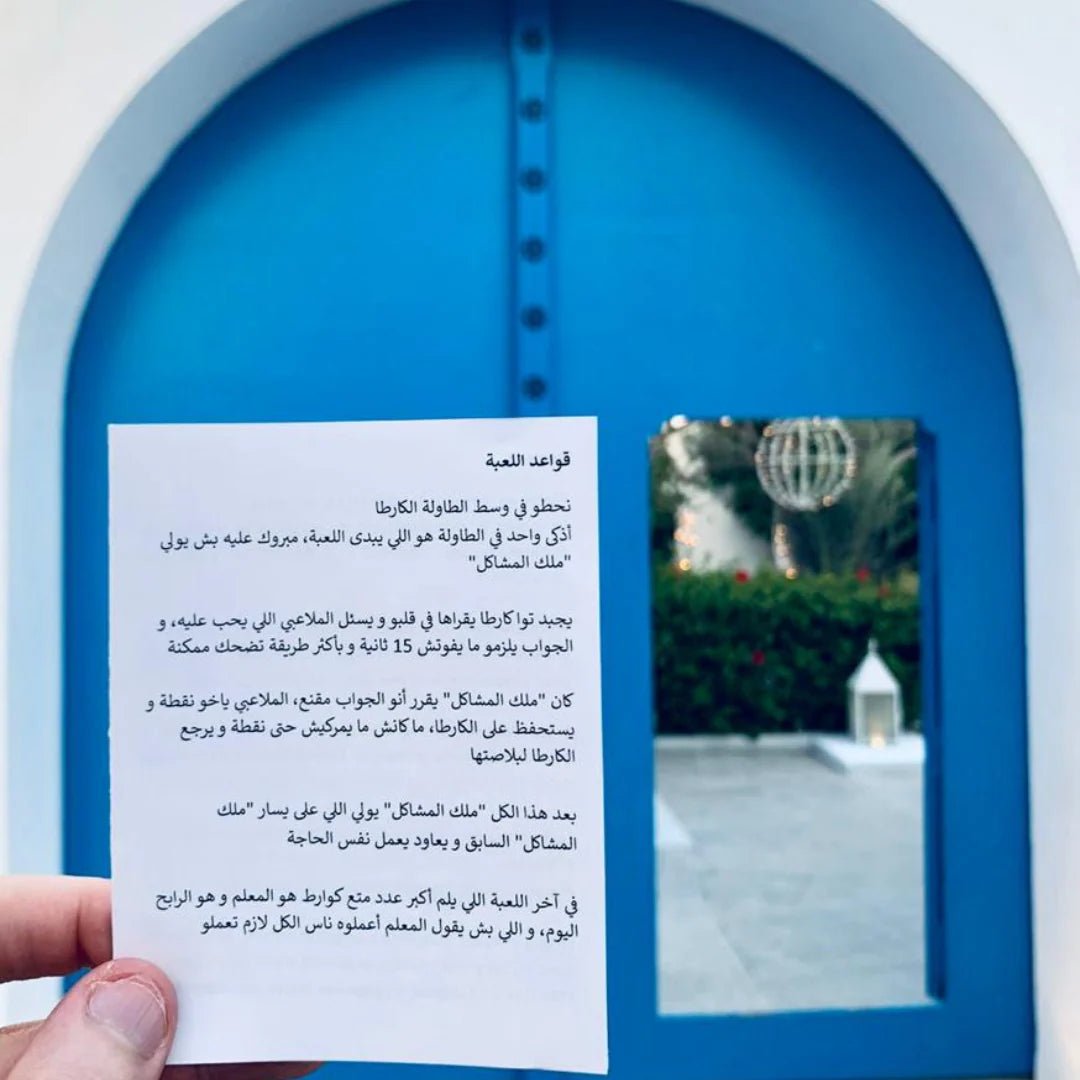 قواعد اللعبة
نحطو في وسط الطاولة الكارطا
أذكى واحد في الطاولة هو اللي يبدى اللعبة، مبروك عليه بش يولي
"ملك المشاكل"
يجبد توا كارطا يقراها في قلبو و يسئل الملاعبي اللي يحب عليه، و
الجواب يلزمو ما يفوتش 15 ثانية و بأكثر طريقة تضحك ممكنة
كان "ملك المشاكل" يقرر أنو الجواب مقنع، الملاعبي ياخو نقطة و
يستحفظ على الكارطا، ما كانش ما يمركيش حتى نقطة و يرجع
الكارطا لبلاصتها
بعد هذا الكل "ملك المشاكل" يولي اللي على يسار "ملك
المشاكل" السابق و يعاود يعمل نفس الحاجة
في آخر اللعبة اللي يلم أكبر عدد متع كوارط هو المعلم و هو الرابح
اليوم، و اللي بش يقول المعلم أعملوه ناس الكل لازم تعملو